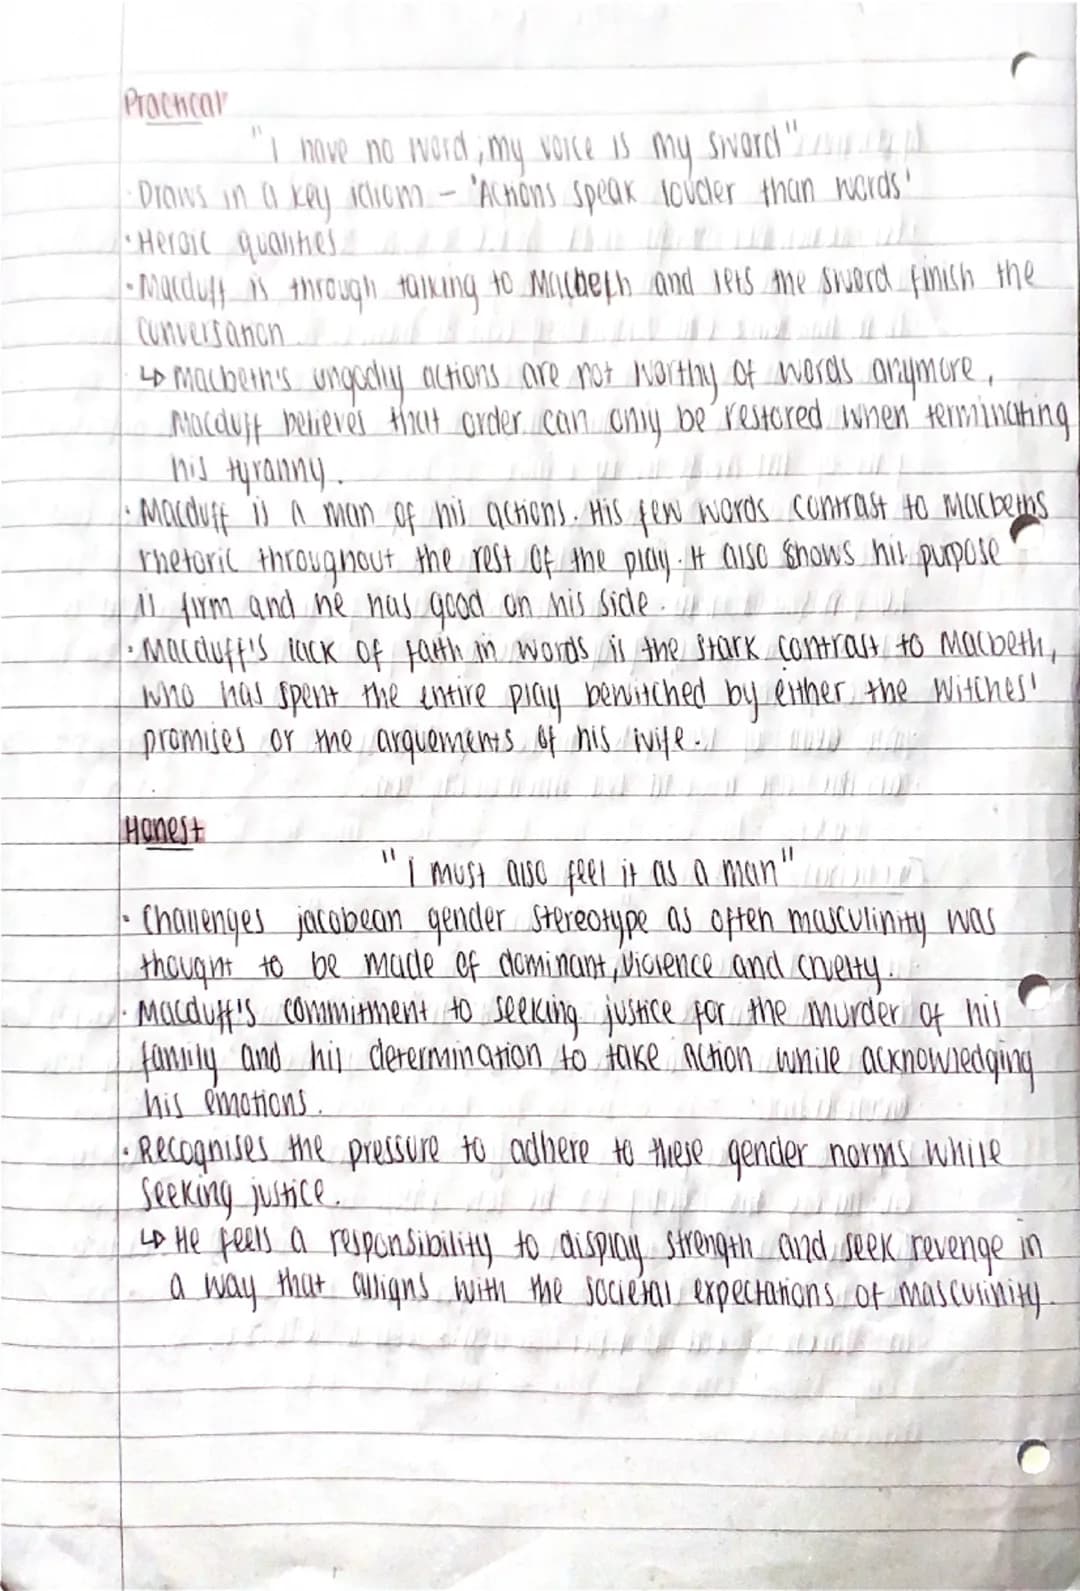 Practical
"I have no word, my voice is my sword"
· Draws in a key idiom - 'Actions speak louder than words'
· Heroic qualities
· Macduff is through talking to Macbeth and lets the sword finish the
conversation
↳ Macbeth's ungodly actions are not worthy of words anymore,
Macduff believes that order can only be restored when terminating
his tyranny.
· Macduff is a man of his actions. His few words contrast to Macbeths
rhetoric throughout the rest of the play. It also shows his purpose
is firm and he has good on his side.
· Macduff's lack of faith in words is the stark contrast to Macbeth,
who has spent the entire play bewitched by either the Witches'
promises or the arguements of his wife.
Honest
"I must also feel it as a man"
· Challenges jacobean gender stereotype as often masculinity was
thought to be made of dominant, violence and cruelty.
· Macduff's commitment to seeking justice for the murder of his
family and his determination to take action while acknowledging
his emotions.
· Recognises the pressure to adhere to these gender norms while
seeking justice.
↳ He feels a responsibility to display strength and seek revenge in
a way that alligns with the societal expectations of masculinity.